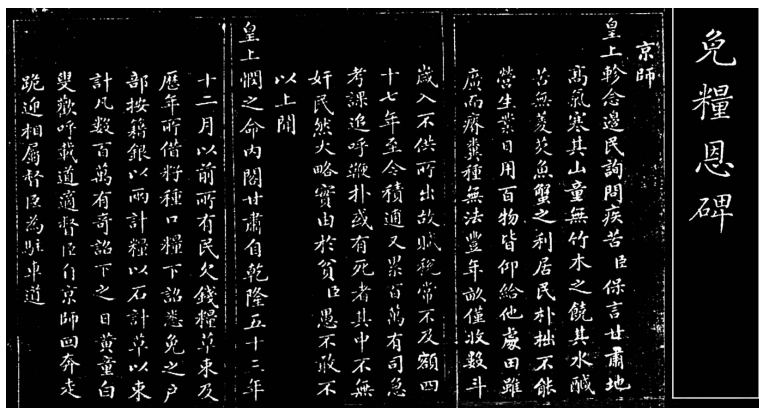 免糧恩碑
京師
皇上軫念邊民詢問疾苦臣保言甘肅地
高氣寒其山童無竹木之饒其水鹹
苦無菱芡魚蟹之利居民朴拙不能
營生業日用百物皆仰給他處田雖
廣而瘠糞種無法豐年畝僅收數斗
歲入不供所出故賦稅常不及額四
十七年至今積逋又累百萬有司急
考課追呼鞭朴或有死者其中不無
奸民然大略實由於貧臣愚不敢不
以上聞
皇上憫之命內閣甘肅自乾隆五十三年
十二月以前所有民欠錢糧草束及
歷年所借籽種口糧下詔悉免之戶
部按籍銀以兩計糧以石計草以束
計凡數百萬有奇詔下之日黃童白
叟歡呼載道適督臣自京師回奔走
跪迎相屬督臣為駐車道